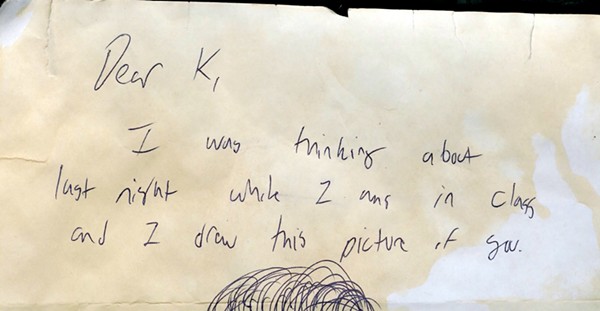 Dear K,
I was thinking about
last night while I was in class
and I draw this picture of you.